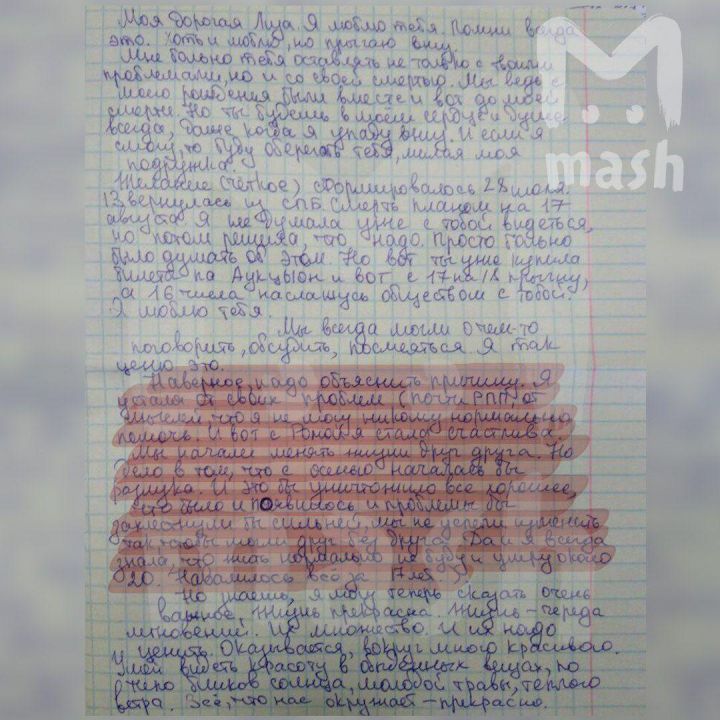 Моя дорогая Лиза. Я люблю тебя. Помни всегда
это. Хоть и люблю, но прыгаю вниз.
Мне больно тебя оставлять не только с твоими
проблемами, но и со своей смертью. Мы ведь с
моего рождения были вместе и вот до моей
смерти. Но ты будешь в моем сердце и душе
всегда, даже когда я упаду вниз. И если я
смогу, то буду оберегать тебя, милая моя
подружка.
Желание (чёткое) сформировалось 28 июля.
13 вернулась из СПБ. Смерть планом на 17
августа. Я не думала уже с тобой видеться,
но потом решила, что надо. Просто больно
было думать об этом. Но вот ты уже купила
билеты на Аукцыон и вот с 17 на 18 прыгну,
а 16 числа наслажусь обществом с тобой.
Я люблю тебя.
Мы всегда могли о чем-то
поговорить, обсудить, посмеяться. Я так
ценю это.
Наверное, надо объяснить причину. Я
устала от своих проблем (почти РПП), от
мыслей, что я не могу никому нормально
помочь. И вот с я стала счастлива.
Мы начали менять жизни друг друга. Но
дело в том, что с осенью началась бы
разлука. И это бы уничтожило все хорошее,
что было и появилось, и проблемы бы
захлестнули бы сильней, мы не успели изменить
так чтобы могли друг без друга. Да и я всегда
знала, что жить нормально не буду и умру около
20. Навалилось всё за 17 лет
Но знаешь, я могу теперь сказать очень
важное, жизнь прекрасна. Жизнь - череда
мгновений. Их множество. И их надо
ценить. Оказывается, вокруг много красивого.
Умей видеть красоту в обыденных вещах, по
бликов солнца, молодой травы, теплого
ветра. Всё, что нас окружает - прекрасно.
mash